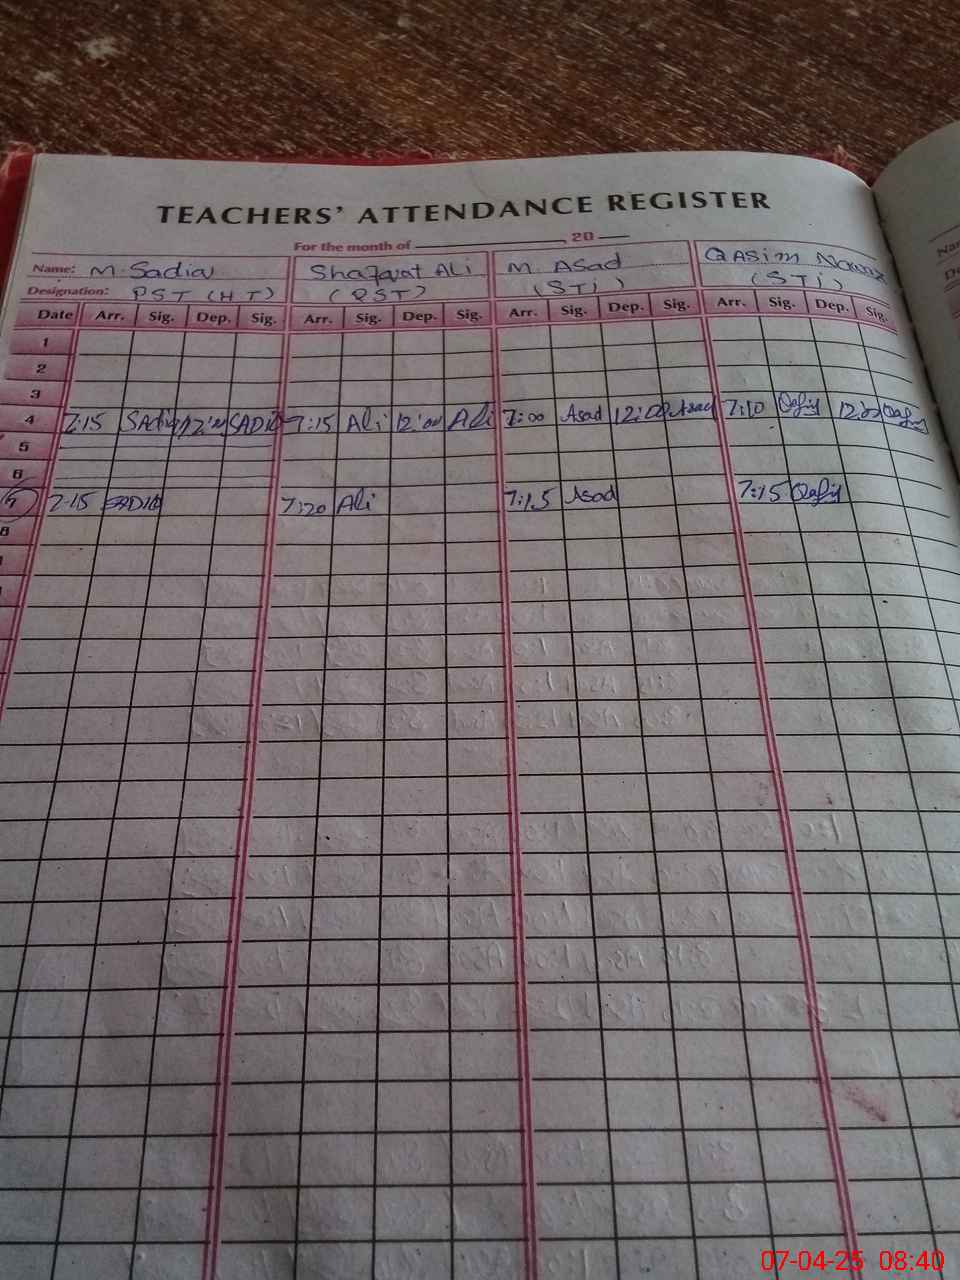 TEACHERS' ATTENDANCE REGISTER
For the month of 20
Name: M. Sadia Shafqat Ali M. Asad QASim Nawaz
Designation: PST (HT) (PST) (STi) (STi)
Date Arr. Sig. Dep. Sig. Arr. Sig. Dep. Sig. Arr. Sig. Dep. Sig. Arr. Sig. Dep. Sig.
1
2
3
4 7:15 SAdia 12:00 SADIA 7:15 Ali 12:00 Ali 7:00 Asad 12:00 Asad 7:10 12:00
5
6
7 7:15 SADIA 7:20 Ali 7:15 Asad 7:15
8
07-04-25 08:40